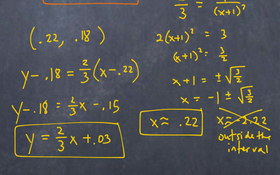 (.22, .18)
y - .18 = 2/3 (x - .22)
y - .18 = 2/3 x - .15
y = 2/3 x + .03
/3 = 1/(x+1)²
2(x+1)² = 3
(x+1)² = 3/2
x + 1 = ± √(3/2)
x = -1 ± √(3/2)
x ≈ .22
x ≈ -2.22
outside the
interval